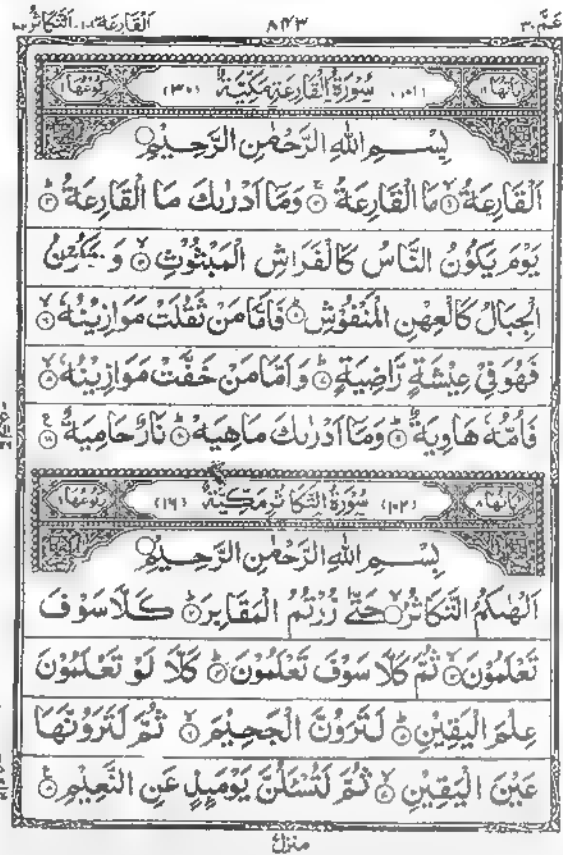 عَمَّ ٣٠ ٨٤٣ اَلْقَارِعَة ١٠١ اَلتَّكَاثُر ١٠٢
اٰيَاتُهَا ١١ (١٠١) سُوْرَةُ الْقَارِعَةِ مَكِّيَّةٌ (٣٠) رُكُوْعُهَا ١
بِسْمِ اللهِ الرَّحْمٰنِ الرَّحِيْمِ
اَلْقَارِعَةُ ۙ﴿١﴾ مَا الْقَارِعَةُ ۚ﴿٢﴾ وَمَاۤ اَدْرٰىكَ مَا الْقَارِعَةُ ؕ﴿٣﴾
يَوْمَ يَكُوْنُ النَّاسُ كَالْفَرَاشِ الْمَبْثُوْثِ ۙ﴿٤﴾ وَ تَكُوْنُ
الْجِبَالُ كَالْعِهْنِ الْمَنْفُوْشِ ؕ﴿٥﴾ فَاَمَّا مَنْ ثَقُلَتْ مَوَازِيْنُهٗ ۙ﴿٦﴾
فَهُوَ فِيْ عِيْشَةٍ رَّاضِيَةٍ ؕ﴿٧﴾ وَاَمَّا مَنْ خَفَّتْ مَوَازِيْنُهٗ ۙ﴿٨﴾
فَاُمُّهٗ هَاوِيَةٌ ؕ﴿٩﴾ وَمَاۤ اَدْرٰىكَ مَاهِيَهْ ؕ﴿١٠﴾ نَارٌ حَامِيَةٌ ﴿١١﴾
اٰيَاتُهَا ٨ (١٠٢) سُوْرَةُ التَّكَاثُرِ مَكِّيَّةٌ (١٦) رُكُوْعُهَا ١
بِسْمِ اللهِ الرَّحْمٰنِ الرَّحِيْمِ
اَلْهٰىكُمُ التَّكَاثُرُ ۙ﴿١﴾ حَتّٰى زُرْتُمُ الْمَقَابِرَ ؕ﴿٢﴾ كَلَّا سَوْفَ
تَعْلَمُوْنَ ۙ﴿٣﴾ ثُمَّ كَلَّا سَوْفَ تَعْلَمُوْنَ ؕ﴿٤﴾ كَلَّا لَوْ تَعْلَمُوْنَ
عِلْمَ الْيَقِيْنِ ؕ﴿٥﴾ لَتَرَوُنَّ الْجَحِيْمَ ۙ﴿٦﴾ ثُمَّ لَتَرَوُنَّهَا
عَيْنَ الْيَقِيْنِ ۙ﴿٧﴾ ثُمَّ لَتُسْئَلُنَّ يَوْمَىِٕذٍ عَنِ النَّعِيْمِ ﴿٨﴾
منزل